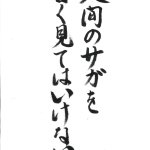 人間のサガを
甘く見てはいけない